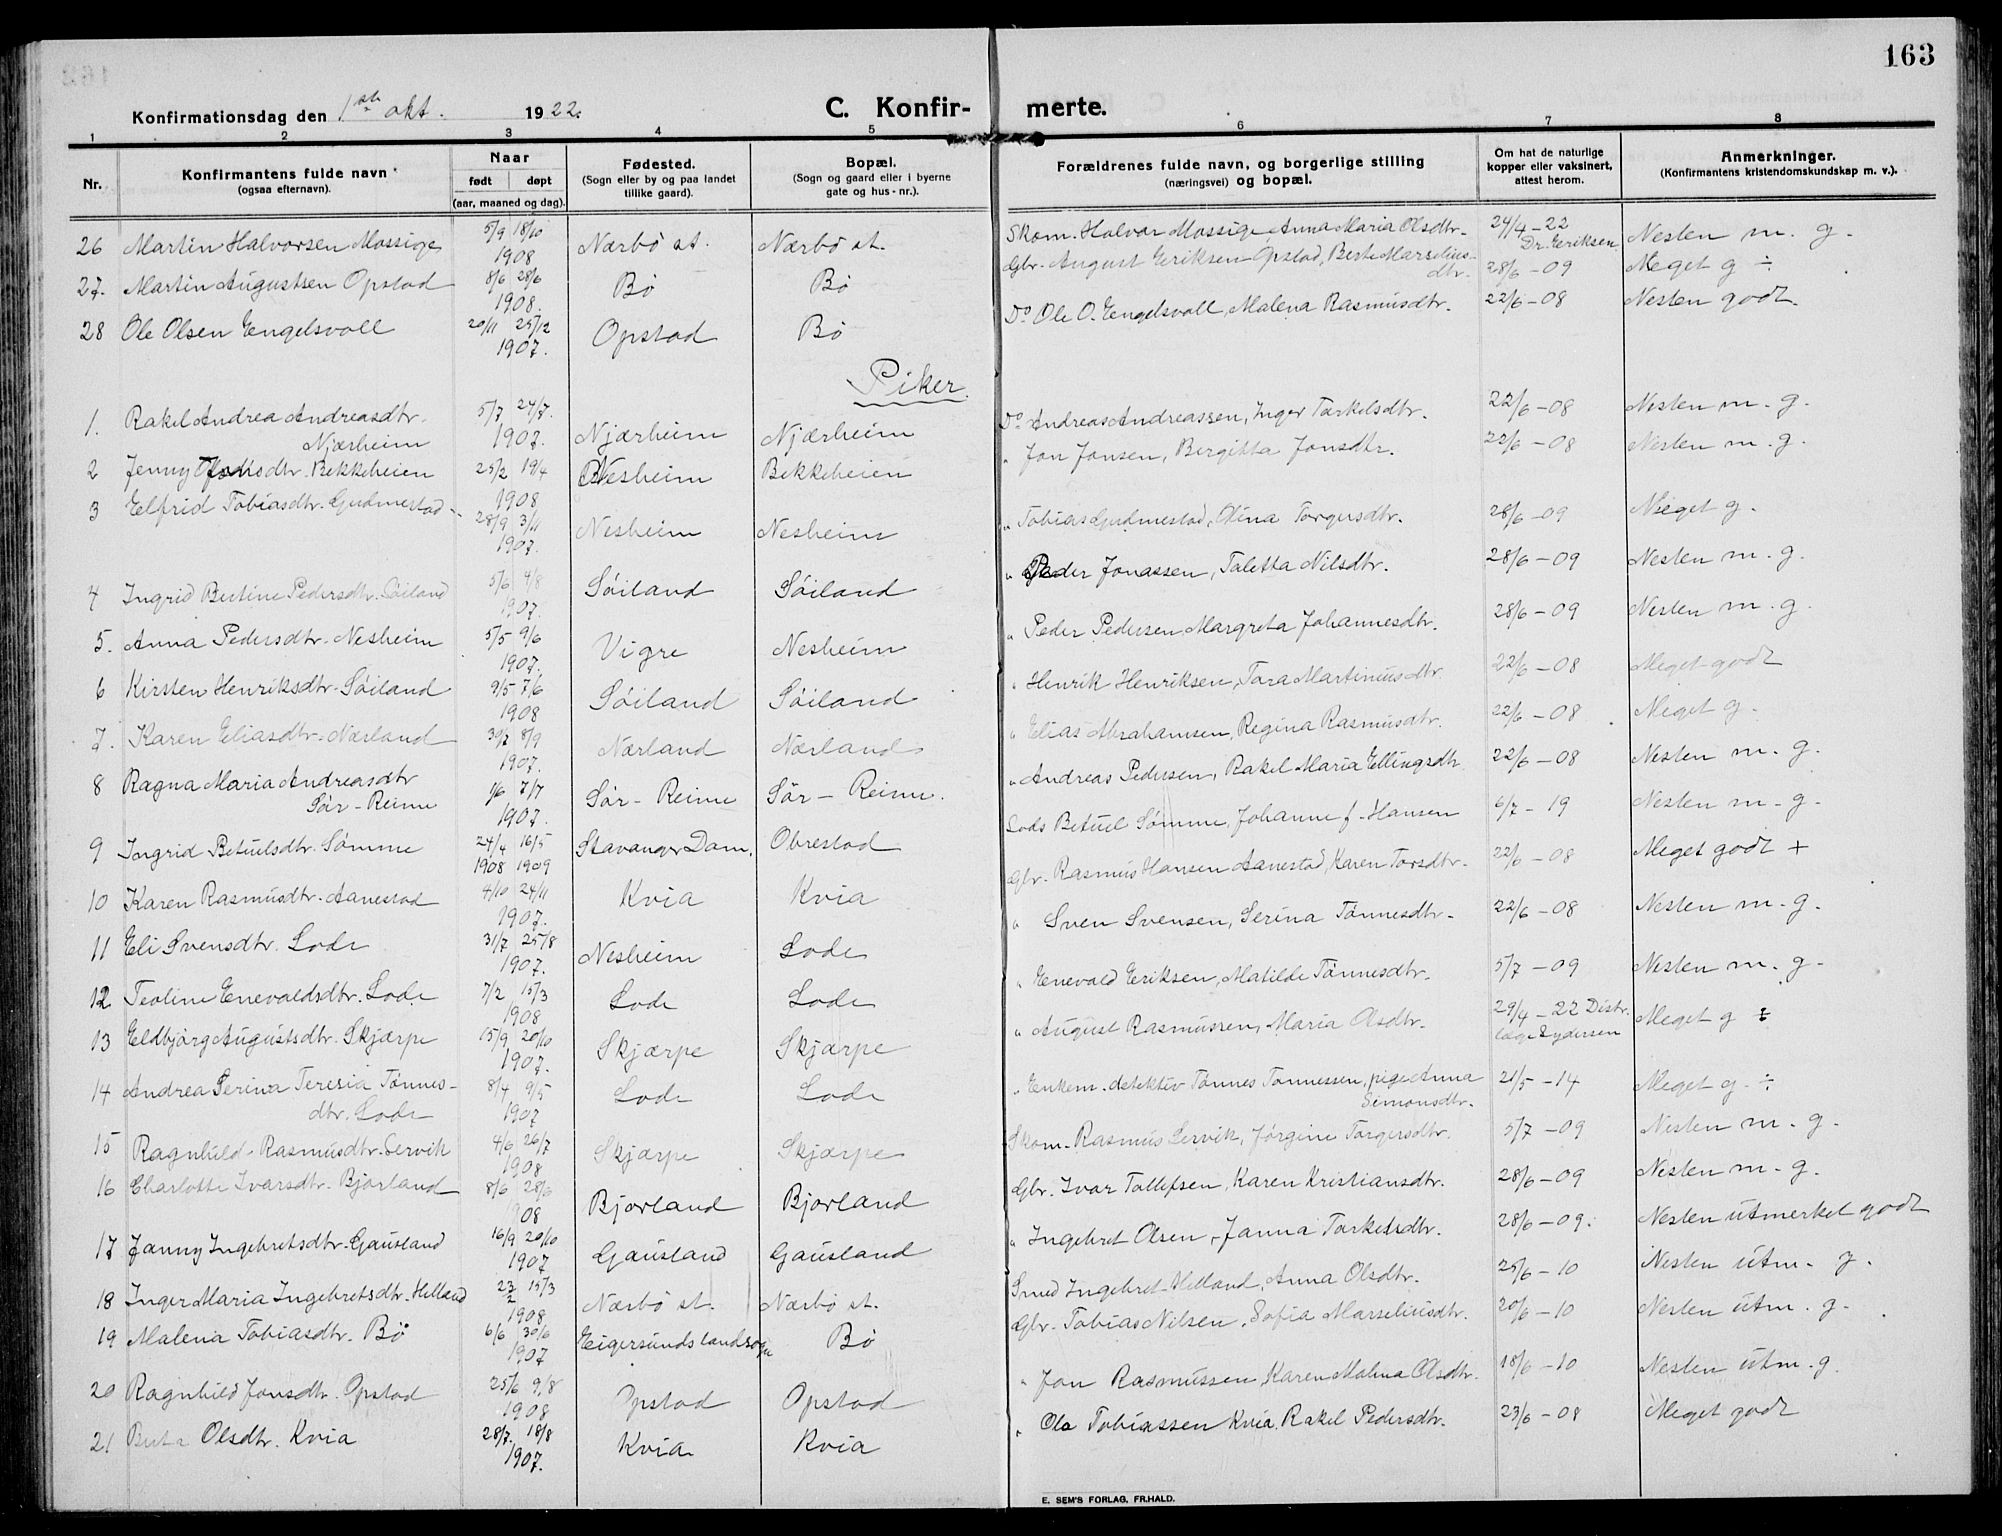 163
Konfirmationsdag den 1ste okt. 1922.
C. Konfirmerte.
1 2 3 4 5 6 7 8
Nr.
Konfirmantens fulde navn
(ogsaa efternavn).
Naar
født døpt
(aar, maaned og dag).
Fødested.
(Sogn eller by og paa landet
tillike gaard).
Bopæl.
(Sogn og gaard eller i byerne
gate og hus-nr.).
Forældrenes fulde navn, og borgerlige stilling
(næringsvei) og bopæl.
Om hat de naturlige
kopper eller vaksinert,
attest herom.
Anmerkninger.
(Konfirmantens kristendomskundskap m. v.).
26 Martin Halvorsen Mossige 5/9 18/10 1908 Nærbø st. Nærbø st. Skom. Halvor Mossige, Anna Maria Olsdtr. 24/4-22 Dr. Eeriksen Nesten m. g.
27. Martin Augustsen Opstad 8/6 28/6 1908. Bø Bø Gbr. August Eriksen Opstad, Berte Marseliusdtr. 28/6-09 Meget g ÷
28 Ole Olsen Engelsvoll 20/11 25/12 1907. Opstad Bø Do Ole O. Engelsvoll, Malena Rasmusdtr. 22/6-08 Nesten godt.
Piker.
1. Rakel Andrea Andreasdtr. Njærheim 5/7 24/7. 1907. Njærheim Njærheim Do Andreas Andreassen, Inger Tarkelsdtr. 22/6-08 Nesten m. g.
2 Jenny Jonsdtr. Bekkeheien 25/2 19/4 1908 Nesheim Bekkeheien " Jon Jonsen, Bergitta Jonsdtr. 22/6-08 Nesten m. g.
3 Elfrid Tobiasdtr. Gudmestad 28/9 3/11 1907. Nesheim Nesheim " Tobias Gudmestad, Olina Torgersdtr. 28/6-09 Meget g.
4 Ingrid Bertine Pedersdtr. Søiland 5/6 4/8 1907. Søiland Søiland " Peder Jonassen, Taletta Nilsdtr. 28/6-09 Nesten m. g.
5. Anna Pedersdtr. Nesheim 5/5 9/6 1907. Vigre Nesheim " Peder Pedersen Margreta Johannesdtr. 28/6-09 Nesten m. g.
6 Kirsten Henriksdtr. Søiland 9/5 7/6 1908 Søiland Søiland " Henrik Henriksen, Tora Martinusdtr. 22/6-08 Meget godt
7. Karen Eliasdtr. Nærland 30/7 8/9 1907. Nærland Nærland " Elias Abrahamsen, Regina Rasmusdtr. 22/6-08 Meget g.
8 Ragna Maria Andreasdtr Sør-Reime 1/6 7/7 1907. Sør-Reime Sør-Reime. " Andreas Pedersen, Rakel Maria Ellingsdtr. 22/6-08 Nesten m. g.
9 Ingrid Betuelsdtr. Sømme 24/4 16/5 1908 1909 Stavanger Dom. Obrestad Lods Betuel Sømme, Johanne f. Hansen 6/7-19 Nesten m. g.
10 Karen Rasmusdtr. Aanestad 4/10 24/11 1907. Kvia Kvia Gbr. Rasmus Hansen Aanestad, Karen Torsdtr. 22/6-08 Meget godt +
11 Eli Svensdtr. Lode 31/7 25/8 1907. Nesheim Lode " Sven Svensen, Serina Tønnesdtr. 22/6-08 Nesten m. g.
12 Teoline Enevaldsdtr. Lode 7/2 15/3 1908 Lode Lode " Enevald Eriksen, Matilde Tønnesdtr. 5/7-09 Nesten m. g.
13 Eldbjørg Augustsdtr. Skjærpe 15/9 20/10 1907. Skjærpe Skjærpe " August Rasmussen, Maria Olsdtr. 29/4-22 Distr. læge Sydersen Meget g ÷
14 Andrea Serina Teresia Tønnesdtr. Lode 8/4 9/5 1907 Lode Lode " Enkem. detektiv Tønnes Tønnessen, pige Anna Simonsdtr. 21/5-14 Meget g. ÷
15 Ragnhild Rasmusdtr. Lervik 4/6 26/7 1908 Skjærpe Skjærpe Skom. Rasmus Lervik, Jørgine Torgersdtr. 5/7-09 Nesten m. g.
16 Charlotte Ivarsdtr. Bjorland 8/6 28/6 1908 Bjorland Bjorland Gbr. Ivar Tollefsen, Karen Kristiansdtr. 28/6-09 Nesten m. g.
17 Janny Ingebretsdtr. Gausland 16/9 20/10 1907 Gausland Gausland " Ingebret Olsen, Janna Torkelsdtr. 28/6-09. Nesten utmerket godt
18 Inger Maria Ingebretsdtr. Helland 23/2 15/3 1908 Nærbø st. Nærbø st. Smed Ingebret Helland, Anna Olsdtr. 25/6-10 Nesten utm. g.
19 Malena Tobiasdtr. Bø 6/6 30/6 1907 Eigersunds landsogn Bø Gbr. Tobias Nilsen, Sofia Marseliusdtr. 20/6-10 Nesten utm. g.
20 Ragnhild Jonsdtr. Opstad 25/6 9/8 1908 Opstad Opstad " Jon Rasmussen, Karen Malena Olsdtr. 18/6-10 Nesten utm. g.
21 Berta Olsdtr. Kvia 28/7. 18/8 1907. Kvia Kvia " Ola Tobiassen Kvia, Rakel Pedersdtr. 23/6-08 Meget godt
E. SEM'S FORLAG, FR.HALD.